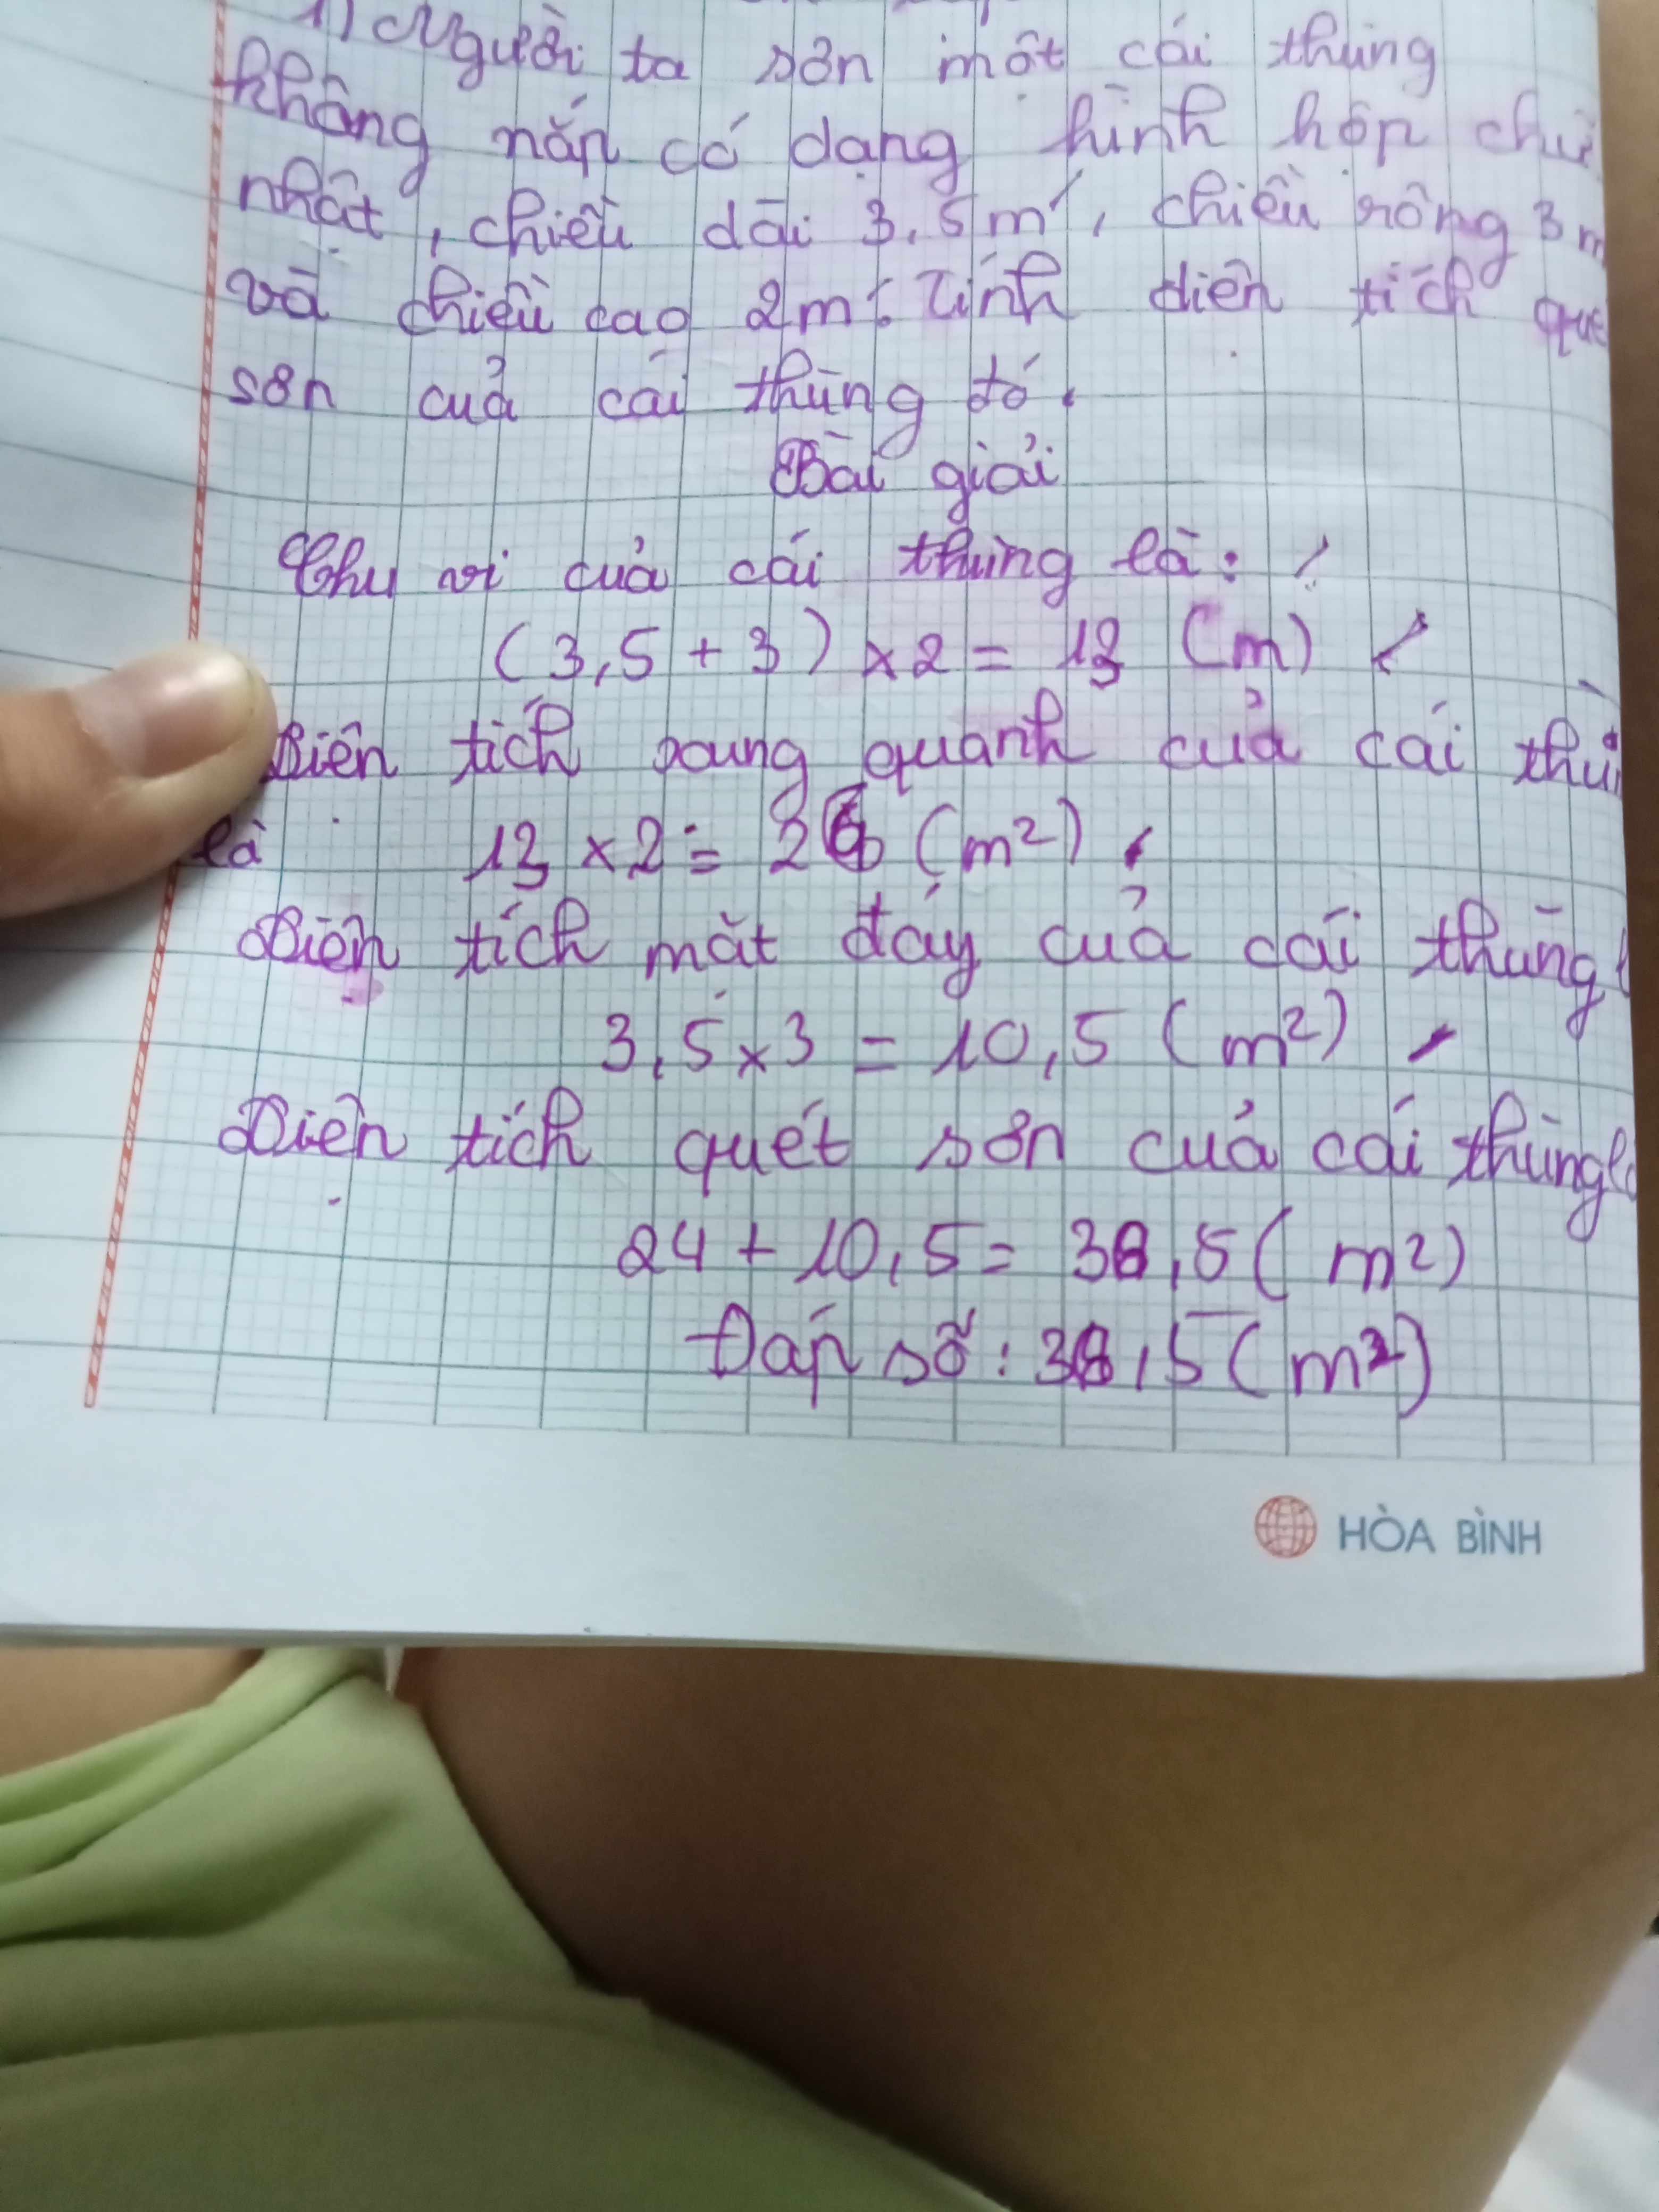 1) Người ta sơn một cái thùng
không nắp có dạng hình hộp chữ
nhật, chiều dài 3,5m, chiều rộng 3m
và chiều cao 2m. Tính diện tích qué
sơn của cái thùng đó.
Bài giải
Chu vi của cái thùng là:
(3,5 + 3) × 2 = 13 (m)
Diện tích xung quanh của cái thùn
là 13 × 2 = 26 (m²)
Diện tích mặt đáy của cái thùng l
3,5 × 3 = 10,5 (m²)
Diện tích quét sơn của cái thùng l
24 + 10,5 = 36,5 (m²)
Đáp số: 36,5 (m²)
HÒA BÌNH